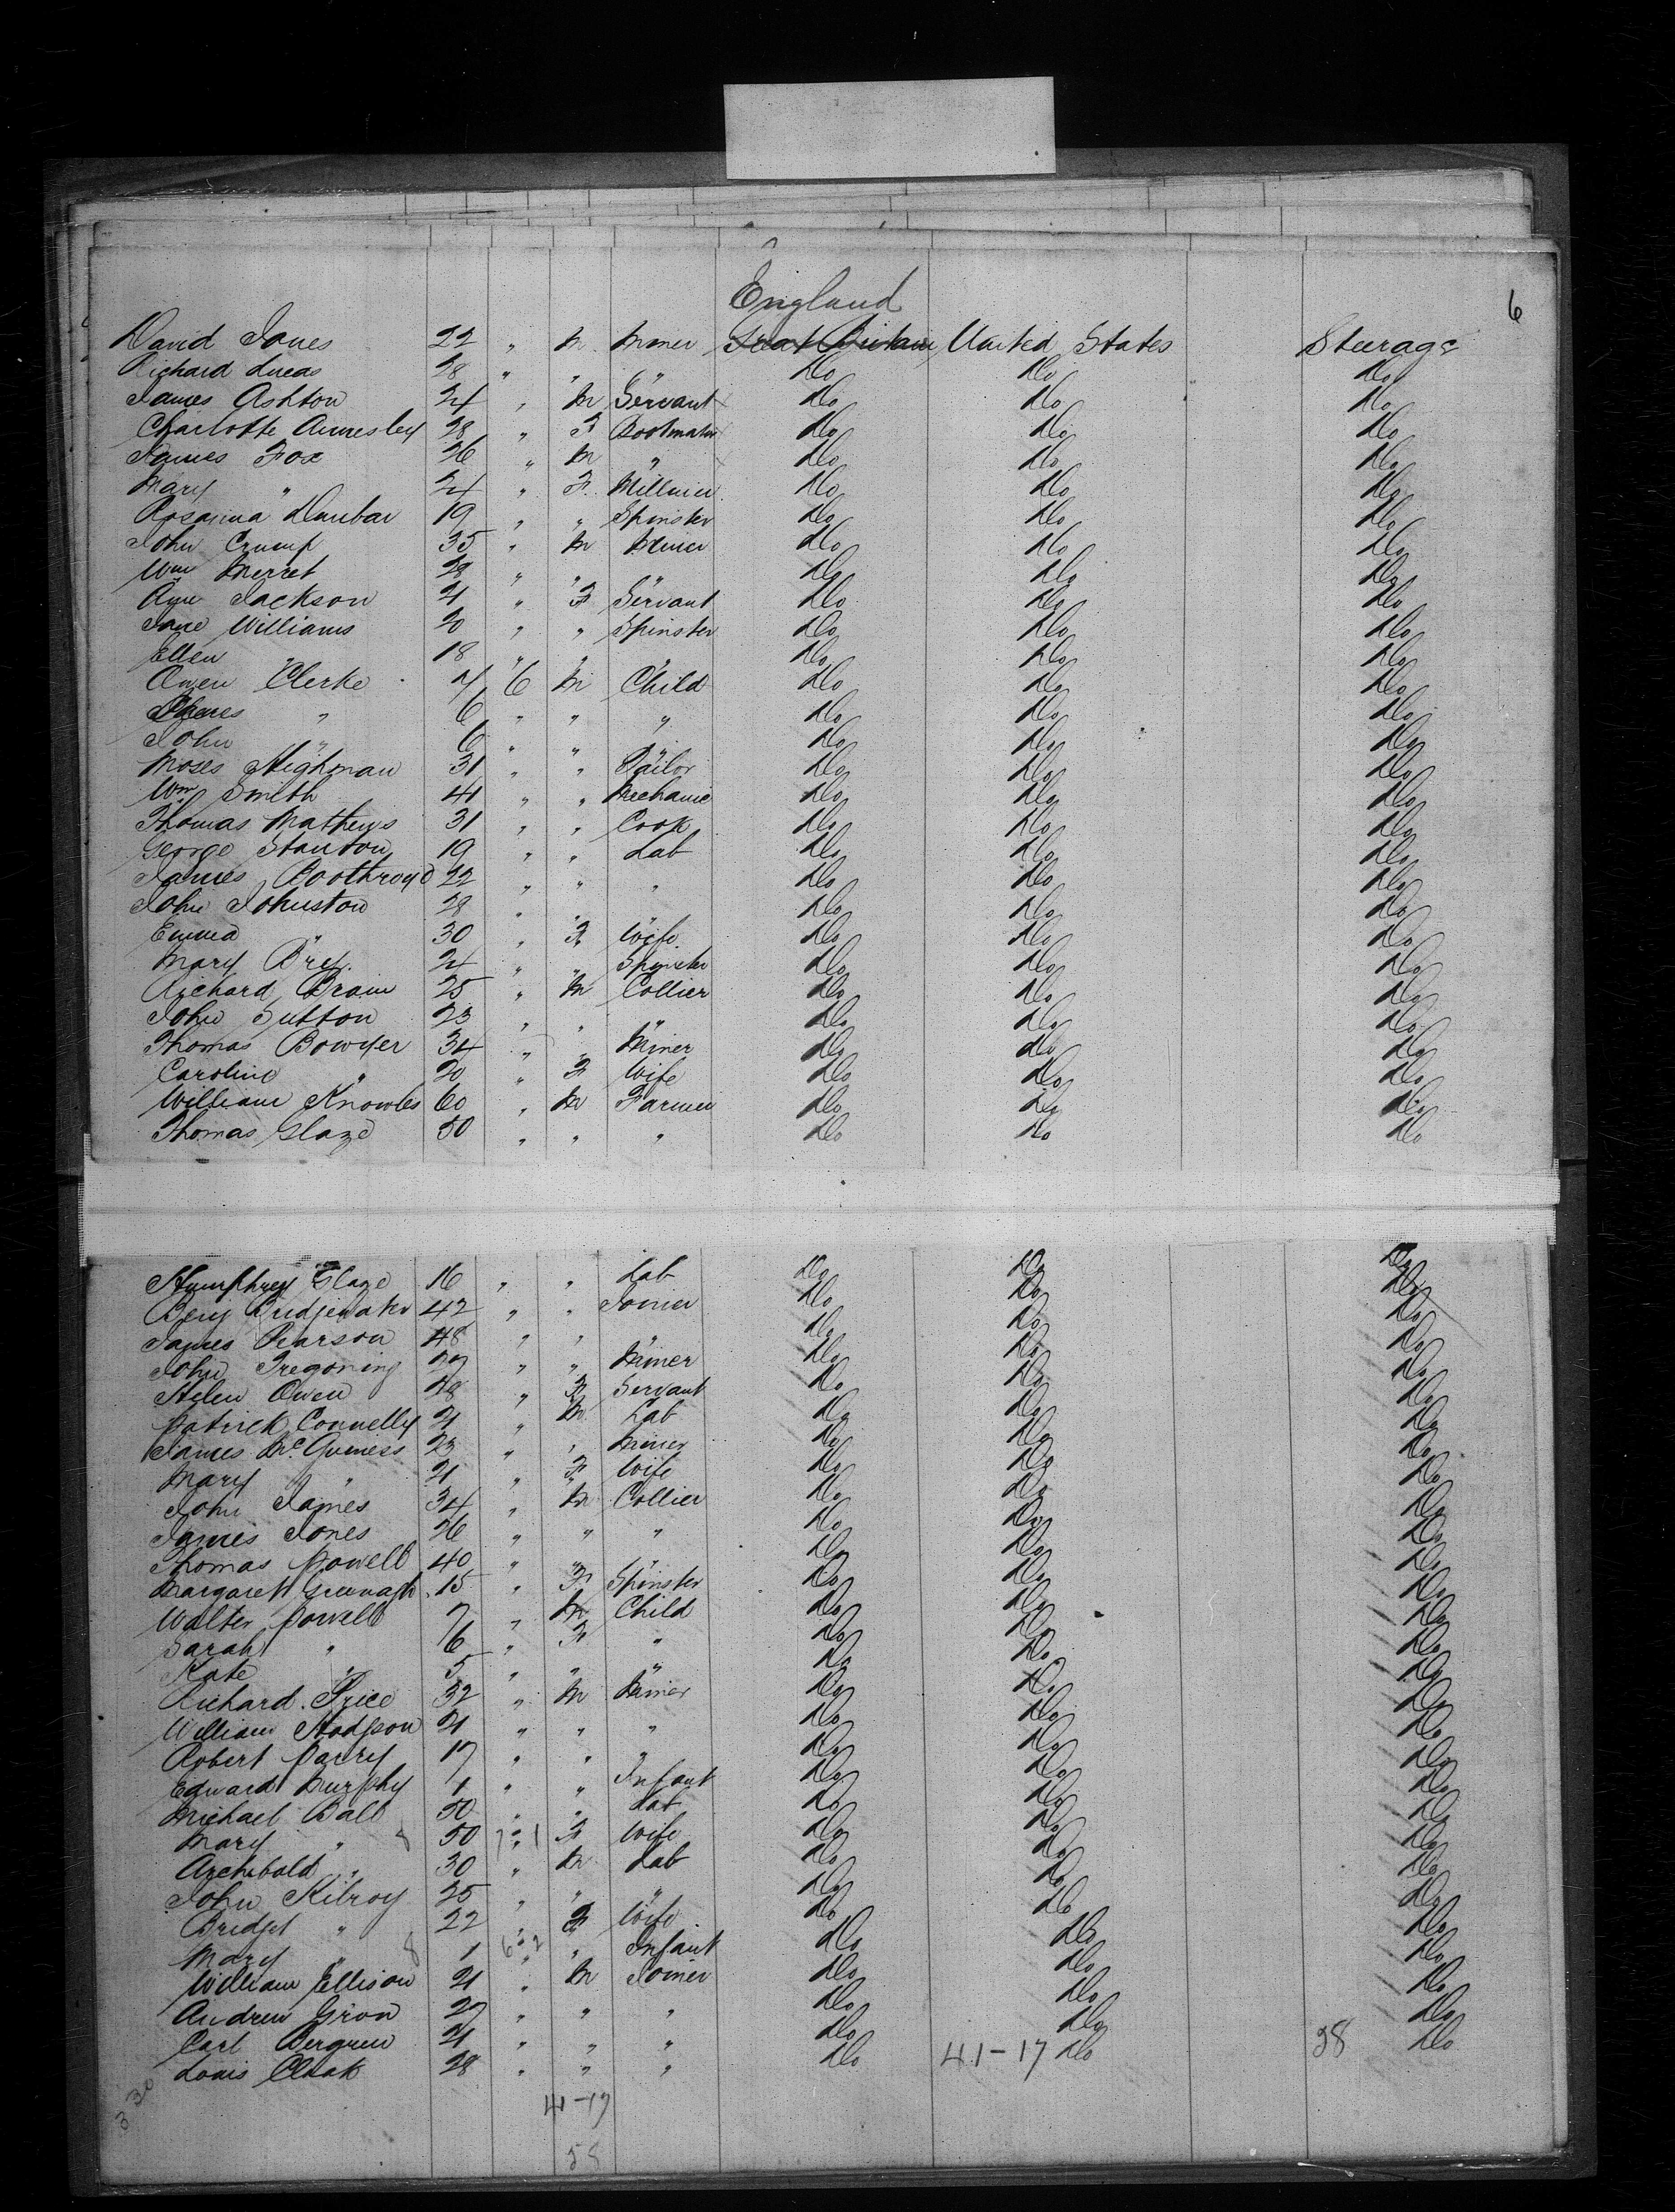 6
England
David Jones 22 " M Miner Great Britain United States Steerage
Richard Lucas 28 " " " Do Do Do
James Ashton 24 " M Servant Do Do Do
Charlotte Annesley 28 " F Bootmaker Do Do Do
James Fox 26 " M " Do Do Do
Mary " 24 " F Milliner Do Do Do
Rosanna Dunbar 19 " " Spinster Do Do Do
John Crump 35 " M Miner Do Do Do
Wm Merret 28 " " " Do Do Do
Jackson 21 " F Servant Do Do Do
Jane Williams 20 " " Spinster Do Do Do
Ellen " 18 " " " Do Do Do
Owen Clerke 7 6 M Child Do Do Do
" 6 " " " Do Do Do
John " 6 " " " Do Do Do
Moses Highman 31 " " Tailor Do Do Do
Wm Smith 41 " " Mechanic Do Do Do
Thomas Mathews 31 " " Cook Do Do Do
George Stanton 19 " " Lab Do Do Do
James Boothroyd 22 " " " Do Do Do
John Johnston 28 " " " Do Do Do
Emma " 30 " F Wife Do Do Do
Mary Brey 24 " " Spinster Do Do Do
Richard Brain 25 " M Collier Do Do Do
John Sutton 23 " " " Do Do Do
Thomas Bowyer 34 " " Miner Do Do Do
Caroline " 20 " F Wife Do Do Do
William Knowles 60 " M Farmer Do Do Do
Thomas Glaze 50 " " " Do Do Do
Humphrey Glaze 16 " " Lab Do Do Do
Benj Bridgewater 42 " " Joiner Do Do Do
James Pearson 48 " " " Do Do Do
John Tregoning 27 " " Miner Do Do Do
Helen Owen 48 " F Servant Do Do Do
Patrick Connelly 21 " M Lab Do Do Do
James McGuiness 23 " " Miner Do Do Do
Mary " 21 " F Wife Do Do Do
John James 34 " M Collier Do Do Do
James Jones 26 " " " Do Do Do
Thomas Powell 40 " " " Do Do Do
Margaret 15 " F Spinster Do Do Do
Walter Powell 7 " M Child Do Do Do
Sarah " 6 " F " Do Do Do
Kate " 5 " " " Do Do Do
Richard Price 32 " M Miner Do Do Do
William Hodgson 21 " " " Do Do Do
Robert Parry 17 " " " Do Do Do
Edward Murphy 1 " " Infant Do Do Do
Michael Ball 50 " " Lab Do Do Do
Mary " 8 50 " F Wife Do Do Do
Archibald " 30 " M Lab Do Do Do
John Kilroy 25 " " " Do Do Do
Bridget " 22 " F Wife Do Do Do
Mary " 8 1 " " Infant Do Do Do
William Ellison 21 " M Joiner Do Do Do
Andrew Gron 27 " " " Do Do Do
Carl Bergren 21 " " " Do Do Do
Louis 28 " " " Do 41-17 Do 58 Do
330
41-17
58